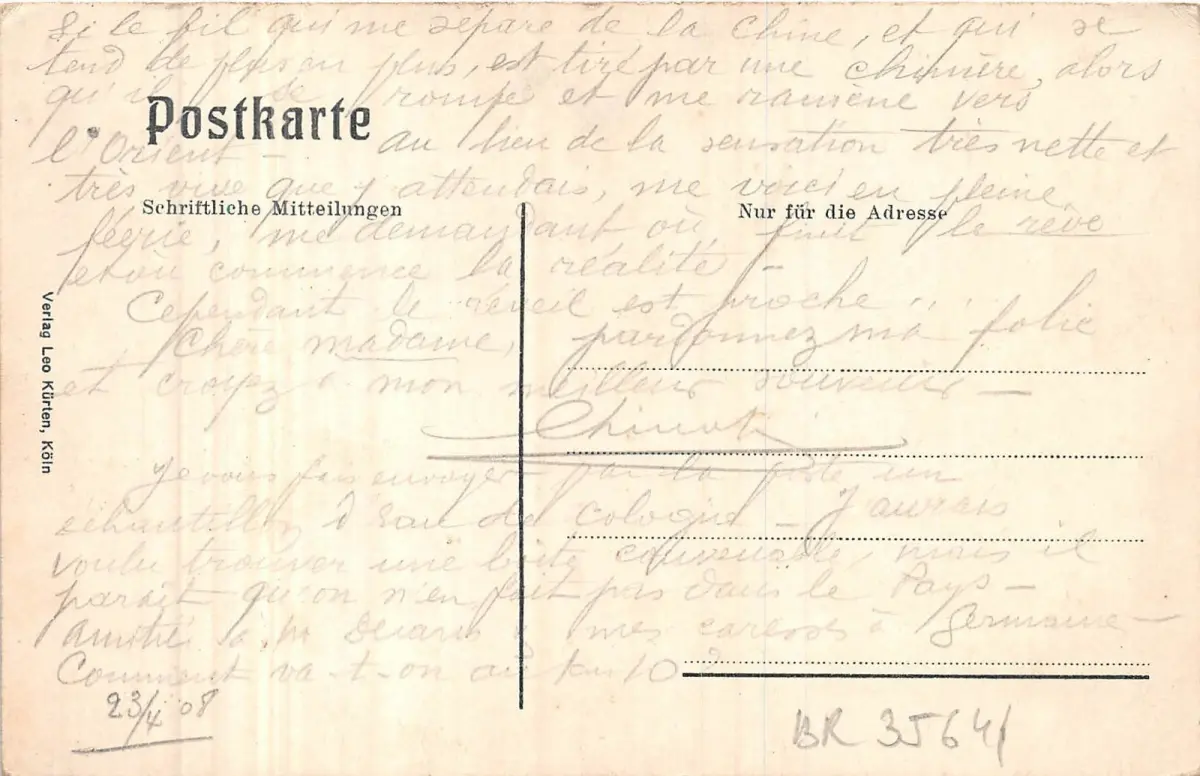 Si le fil qui me sépare de la Chine, et qui se
tend de plus en plus, est tiré par une chimère, alors
qu'il se rompe et me ramène vers
Postkarte
l'Orient - au lieu de la sensation très nette et
très vive que j'attendais, me voici en pleine
Schriftliche Mitteilungen
Nur für die Adresse
féerie, me demandant où finit le rêve
et où commence la réalité -
Cependant le réveil est proche ...
Chère madame, pardonnez ma folie
et croyez à mon meilleur souvenir -
Verlag Leo Kürten, Köln
Je vous fais envoyer par la poste un
échantillon d'Eau de Cologne - J'aurais
voulu trouver une boîte convenable, mais il
paraît qu'on n'en fait pas dans le Pays -
Amitiés à M. mes caresses à Germaine -
Comment va-t-on au 10 ?
23/4 08
BR 35641